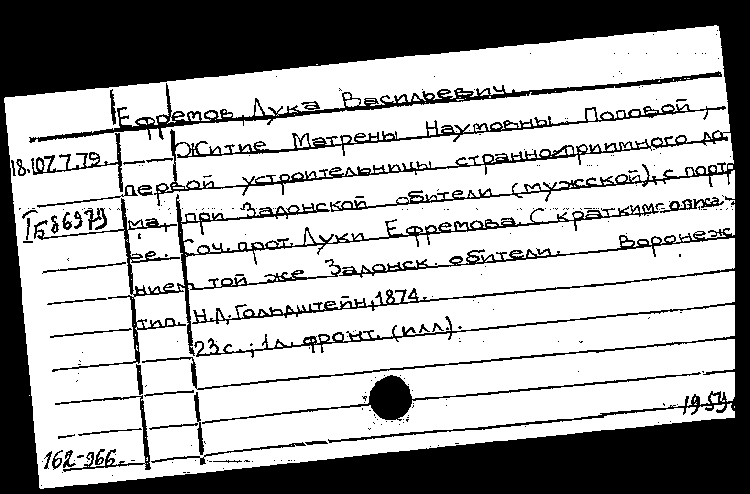 Ефремов, Лука Васильевич.
18.107.7.79. Житие Матрены Наумовны Поповой,
первой устроительницы странноприимного до-
Iб86979 ма, при Задонской обители (мужской), с портр
ее. Соч. прот. Луки Ефремова. С кратким описа-
нием той же Задонск. обители. Воронеж
тип. Н.Д. Гольдштейн, 1874.
23 с.; 1 л. фронт. (илл).
162-966.